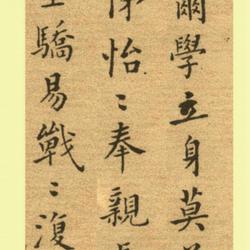 爾學立身莫
悌怡〻奉親
驕易戰〻復